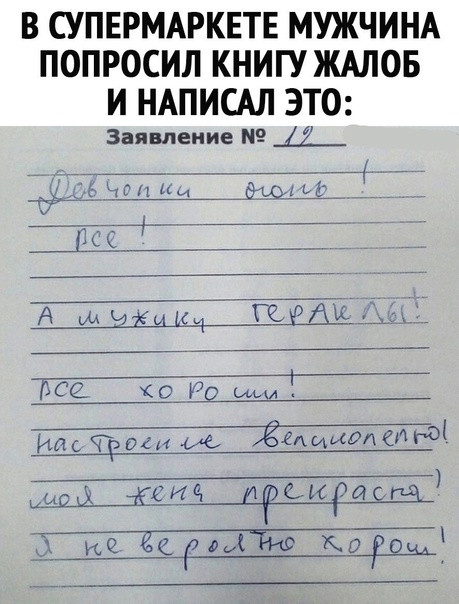 В СУПЕРМАРКЕТЕ МУЖЧИНА
ПОПРОСИЛ КНИГУ ЖАЛОБ
И НАПИСАЛ ЭТО:
Заявление № 19
Девчопки огонь !
Все !
А мужики ГЕРАКЛЫ!
Все хороши!
Настроение Великолепно!
моя жена прекрасна!
Я невероятно хорош!